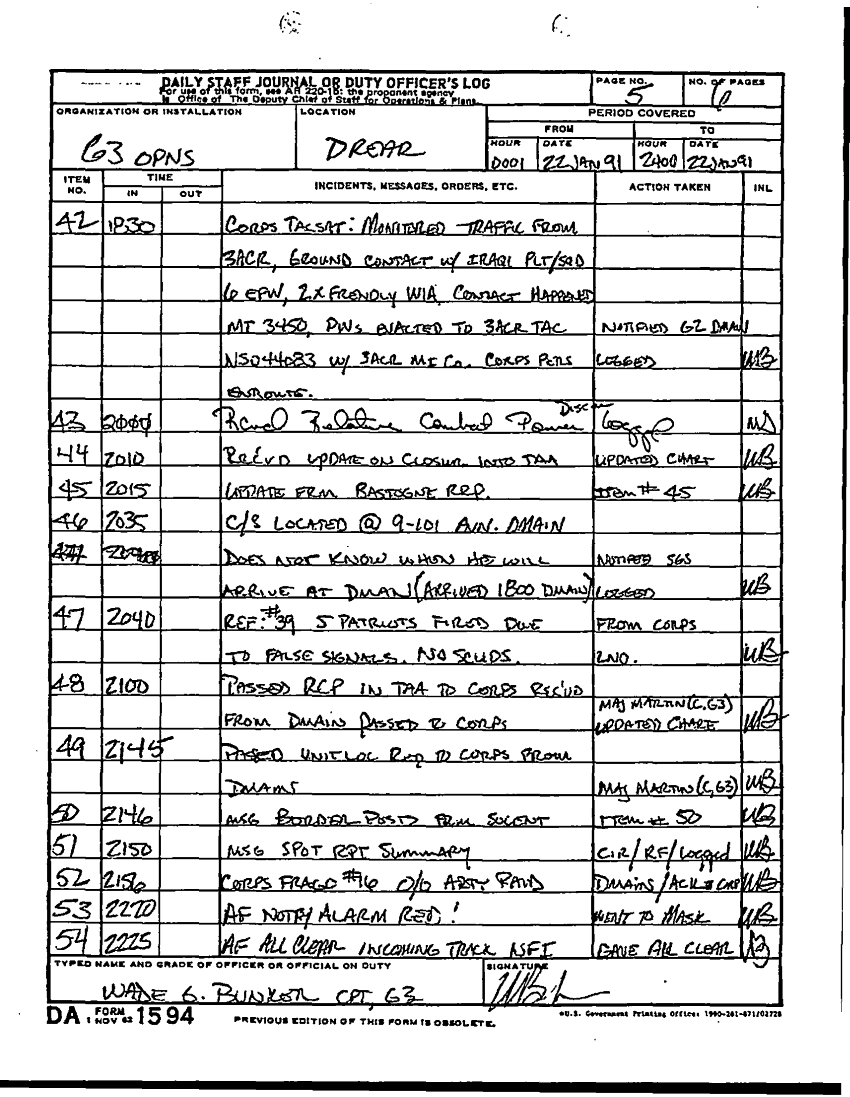 DAILY STAFF JOURNAL OR DUTY OFFICER'S LOG
For use of this form, see AR 220-15; the proponent agency
is Office of The Deputy Chief of Staff for Operations & Plans.
PAGE NO.
5
NO. OF PAGES
6
ORGANIZATION OR INSTALLATION
G3 OPNS
LOCATION
DREAR
PERIOD COVERED
FROM
TO
HOUR DATE HOUR DATE
0001 22 JAN 91 2400 22 JAN 91
ITEM NO.
TIME
IN OUT
INCIDENTS, MESSAGES, ORDERS, ETC.
ACTION TAKEN
INL
42 1830 CORPS TACSAT: MONITORED TRAFFIC FROM
3ACR, GROUND CONTACT W/ IRAQI PLT/SQD
6 EPW, 2 X FRENDLY WIA, CONTACT HAPPENED
MT 3450, PWs EVACTED TO 3ACR TAC NOTIFIED G2 DMAIN
NS044083 W/ 3ACR MI CO. CORPS LOGGED WB
ENROUTE.
43 2000 Relative Combat Power Logged
44 2010 UPDATE ON CLOSURE INTO TAA UPDATED CHART WB
45 2015 UPDATE FRM BASTOGNE REP. ITEM # 45 WB
46 2035 C/S LOCATED @ 9-101 AVN. DMAIN
DOES NOT KNOW WHEN HE WILL NOTIFIED SGS
ARRIVE AT DMAIN (ARRIVED 1800 DMAIN) LOGGED WB
47 2040 REF: #39 5 PATRIOTS FIRED DUE FROM CORPS
TO FALSE SIGNALS. NO SCUDS. LNO. WB
48 2100 PASSED RCP IN TAA TO CORPS REC'VD MAJ MARTIN (C, G3)
FROM DMAIN PASSED TO CORPS UPDATED CHART WB
49 2145 PASSED UNIT LOC REQ TO CORPS FROM
DMAINS MAJ MARTIN (C, G3) WB
50 2146 MSG BORDER POSTS FRM ITEM # 50 WB
51 2150 MSG SPOT RPT SUMMARY CIR/RF/Logged WB
52 2156 CORPS FRAGO #16 O/O ARTY RAID DMAINS/ACK WB
53 2220 AF NOTFY ALARM RED! WENT TO MASK WB
54 2225 AF ALL CLEAR INCOMING TRACK NSFI GAVE ALL CLEAR
TYPED NAME AND GRADE OF OFFICER OR OFFICIAL ON DUTY
WADE G. BUNKER CPT, G3
SIGNATURE
DA FORM 1 NOV 62 1594
PREVIOUS EDITION OF THIS FORM IS OBSOLETE.
*U.S. Government Printing Office: 1990-261-871/02728